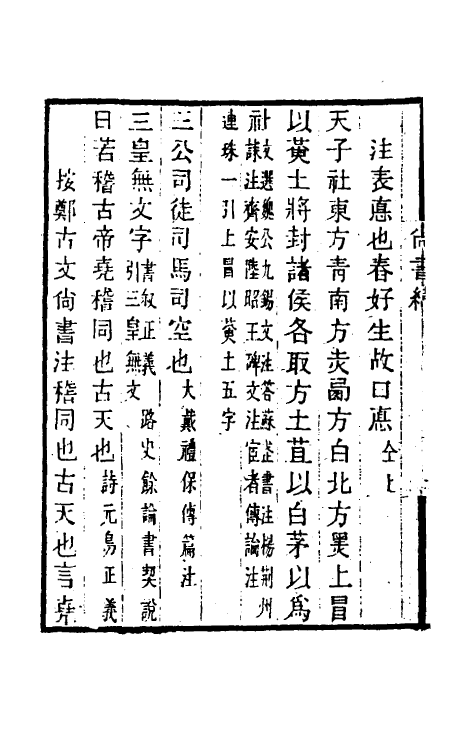 尚書緯
注表憙也春好生故口憙 仝上
天子社東方青南方赤西方白北方黑上冒
以黃土將封諸侯各取方土苴以白茅以爲
社 文選魏公九錫文注答蘇武書注楊荆州
誄注齊安陸昭王碑文注宦者傳論注
連珠一引上冒以黃土五字
三公司徒司馬司空也 大戴禮保傳篇注
三皇無文字 書叙正義 路史餘論書契說
引三皇無文
曰若稽古帝堯稽同也古天也 詩元鳥正義
按鄭古文尚書注稽同也古天也言堯